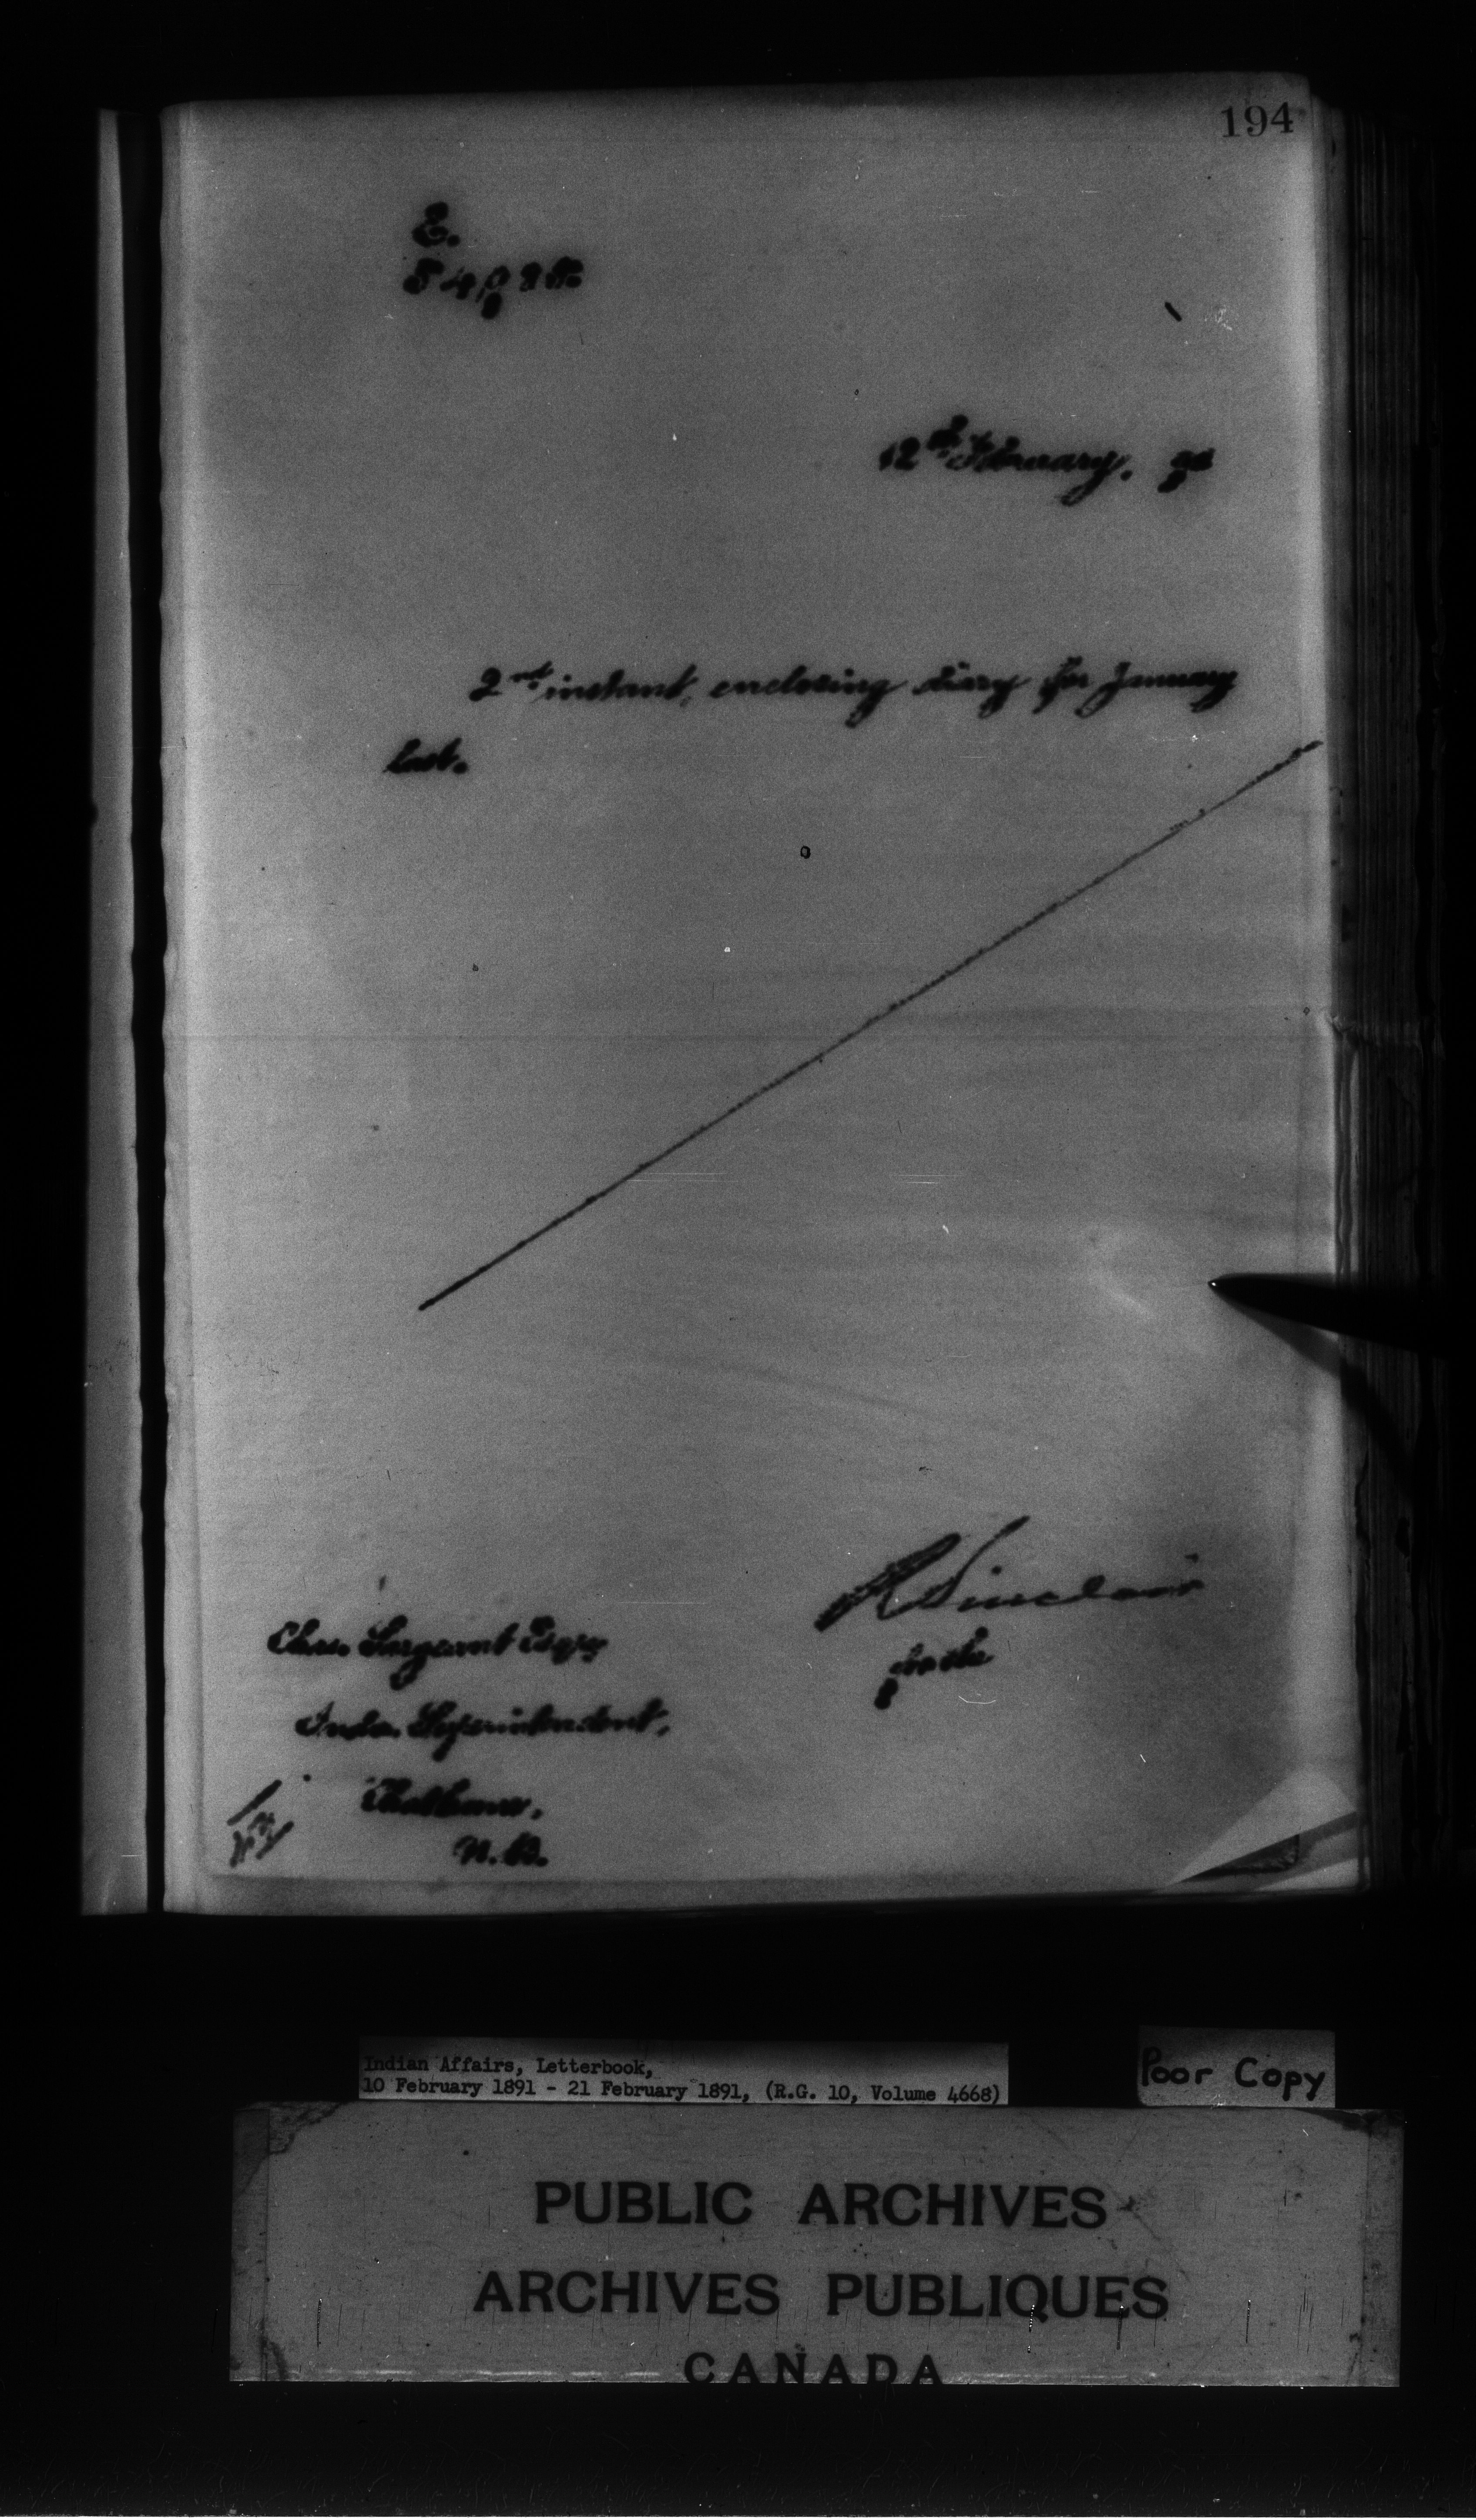 194
E.
12th February, 91
2nd instant, enclosing diary for January
last.
R Sinclair
for the
Chas. Sargeant Esqre
Indn. Superintendent,
Chatham,
N.B.
Indian Affairs, Letterbook,
10 February 1891 - 21 February 1891, (R.G. 10, Volume 4668)
Poor Copy
PUBLIC ARCHIVES
ARCHIVES PUBLIQUES
CANADA